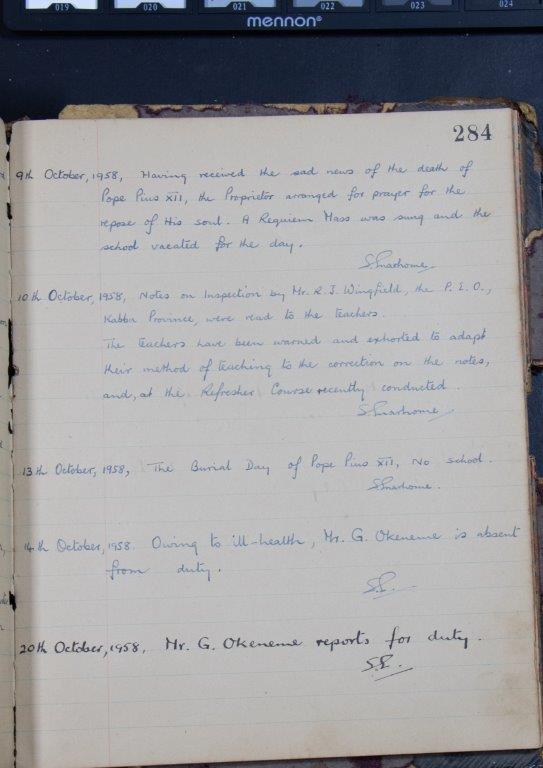 019 020 021 022 023 024
mennon®
284
9th October, 1958, Having received the sad news of the death of
Pope Pius XII, the Proprietor arranged for prayer for the
repose of His soul. A Requiem Mass was sung and the
school vacated for the day.
10th October, 1958, Notes on Inspection by Mr. R. J. Wingfield, the P. E. O.,
Kabba Province, were read to the teachers.
The teachers have been warned and exhorted to adapt
their method of teaching to the correction on the notes,
and, at the Refresher Course recently conducted.
13th October, 1958, The Burial Day of Pope Pius XII, No school.
14th October, 1958. Owing to ill-health, Mr. G. Okeneme is absent
from duty.
20th October, 1958, Mr. G. Okeneme reports for duty.